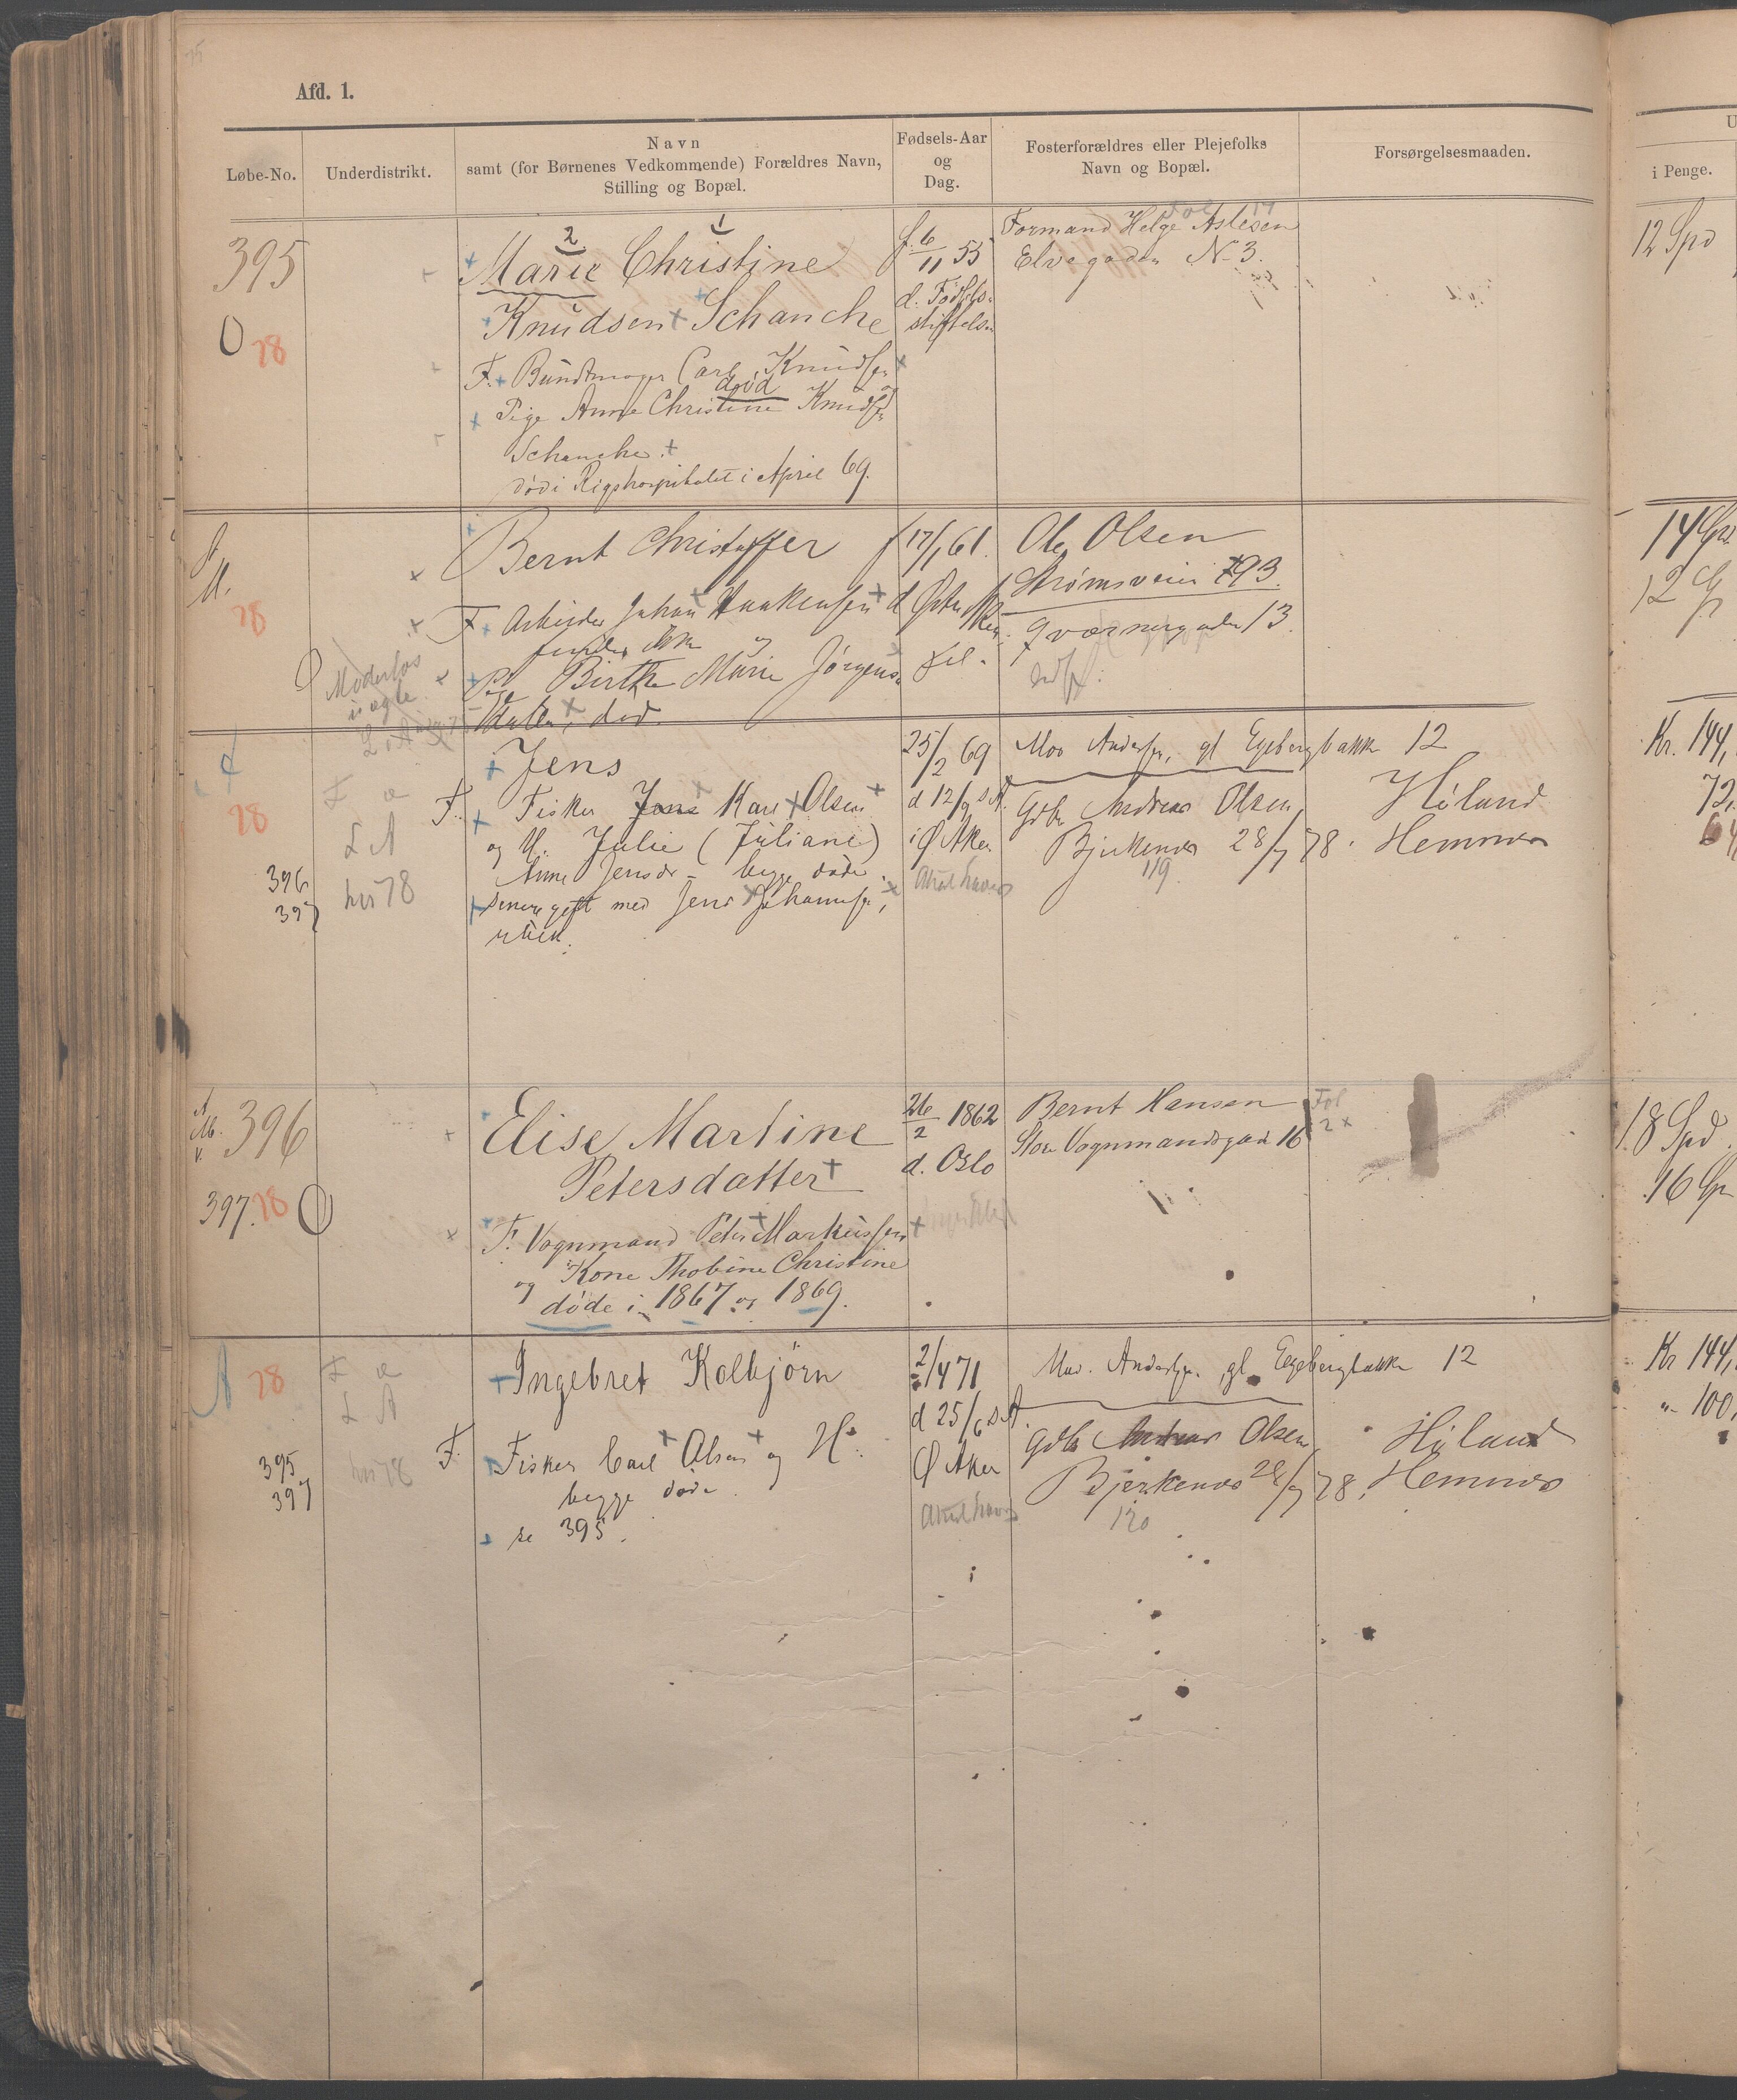 Afd. 1.
Løbe-No.
Underdistrikt.
Navn
samt (for Børnenes Vedkommende) Forældres Navn,
Stilling og Bopæl.
Fødsels-Aar
og
Dag.
Fosterforældres eller Plejefolks
Navn og Bopæl.
Forsørgelsesmaaden.
i Penge.
395
O 78
2 1
Marie Christine
Knudsen Schanche
F. Bundtmager Carl Knudsen
død og
Pige Anne Christine Knudsen
Schanche.
død i Rigshospitalet i April 69.
f. 6/11 55
d. Fødsels-
stiftelsen
Formand Helge Aslesen
Elvegaden N. 3.
12 Spd
78
Moderløs
uægte
Bernt Christoffer
F. Arbeider Johan Haakensen
og
Pige Birthe Marie Jørgens
død.
f 17/1 61.
d Østre Aker
Ole Olsen
Strømsveien 93.
Qværnergaden 13.
12
78
396
397
F
L A
78
Jens
F. Fisker Jens Karl Olsen
og H. Julie (Juliane)
Anne Jensdr - begge døde.
senere gift med Jens Johannesen,
25/2 69
d 12/9 s. A.
i Ø Aker
Mov Andersen, gl Egebergbakke 12
Gdbr Andreas Olsen, Høland
Bjerkenes 28/7 78. Hemnes
119.
Kr. 144,
72,
396
397. 78 O
Elise Martine
Petersdatter
F. Vognmand Peter Markussen
og Kone Thobine Christine
døde i 1867 og 1869.
26/2 1862
d. Oslo
Bernt Hansen
Store Vognmandsgade 16
Fol
2 x
18 Spd.
16
A 78
395
397
F
L A
78
Ingebret Kolbjørn
F. Fisker Carl Olsen og H.
begge døde.
se 395.
2/4 71
d 25/6 s. A.
Ø Aker
Mad. Andersen, gl. Egebergbakke 12
Gdbr Andreas Olsen, Høland
Bjerkenes 28/7 78. Hemnes
120
Kr 144,
" 100,